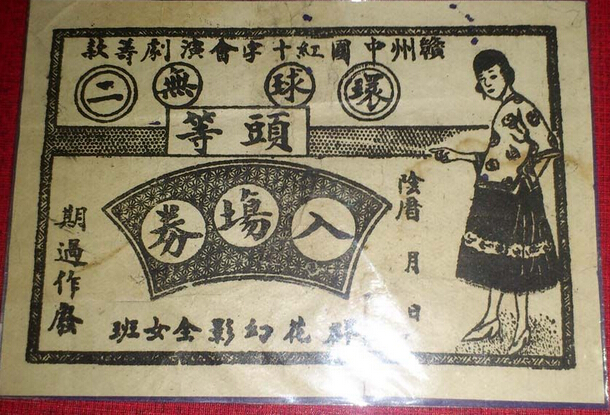 贛州中國紅十字會演劇籌款
環球無二
頭等
入塲券
陰曆 月 日
期過作廢
花幻影全女班